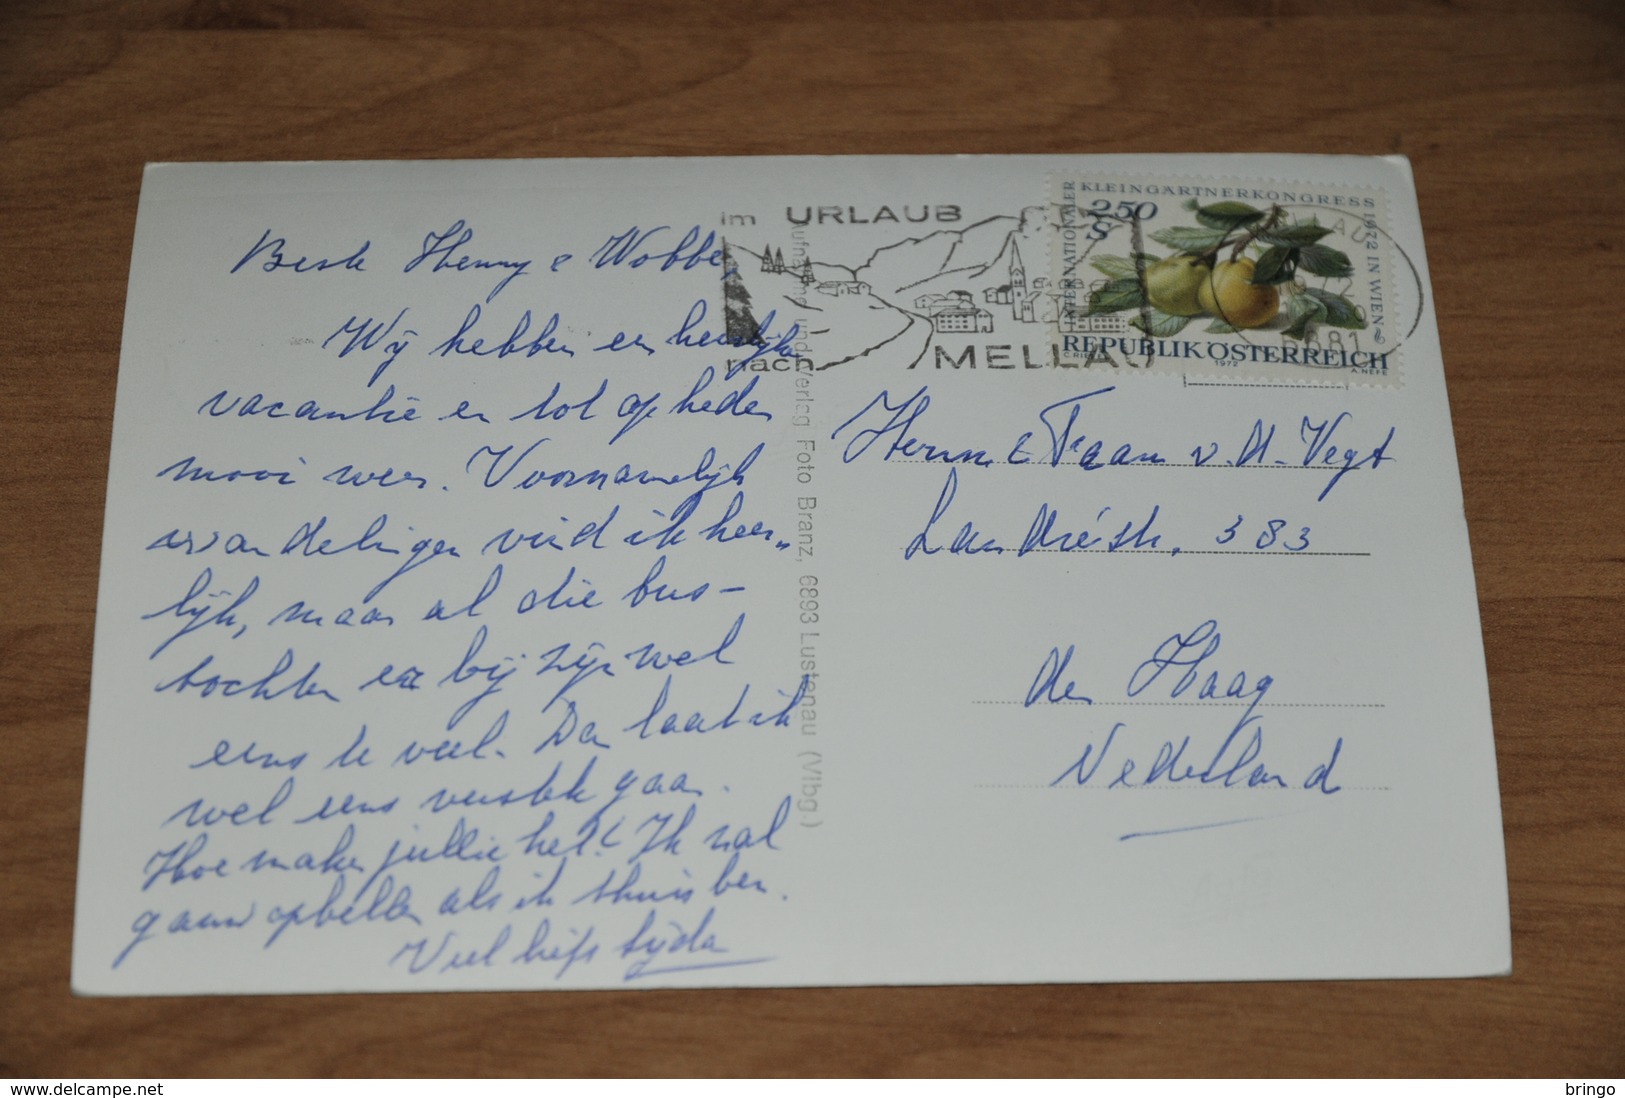 Beste Henny & Wobbe,
Wij hebben een heerlijke
vacantie en tot op heden
mooi weer. Voornamelijk
wandelingen vind ik heer„
lijk, maar al die bus-
tochten er bij zijn wel
eens te veel. Dan laat ik
wel eens verstek gaan.
Hoe maken jullie het? Ik zal
gauw opbellen als ik thuis ben.
Veel liefs Sijda
im URLAUB
nach MELLAU
Aufnahme und Verlag Foto Branz, 6893 Lustenau (Vlbg.)
INTERNATIONALER KLEINGÄRTNERKONGRESS 1972 IN WIEN
2.50
S
REPUBLIK ÖSTERREICH
1972
A. NEFE
6881
Herrn & Fraam v. d. Vegt
Landréstr. 383
den Haag
Nederland
www.delcampe.net
bringo